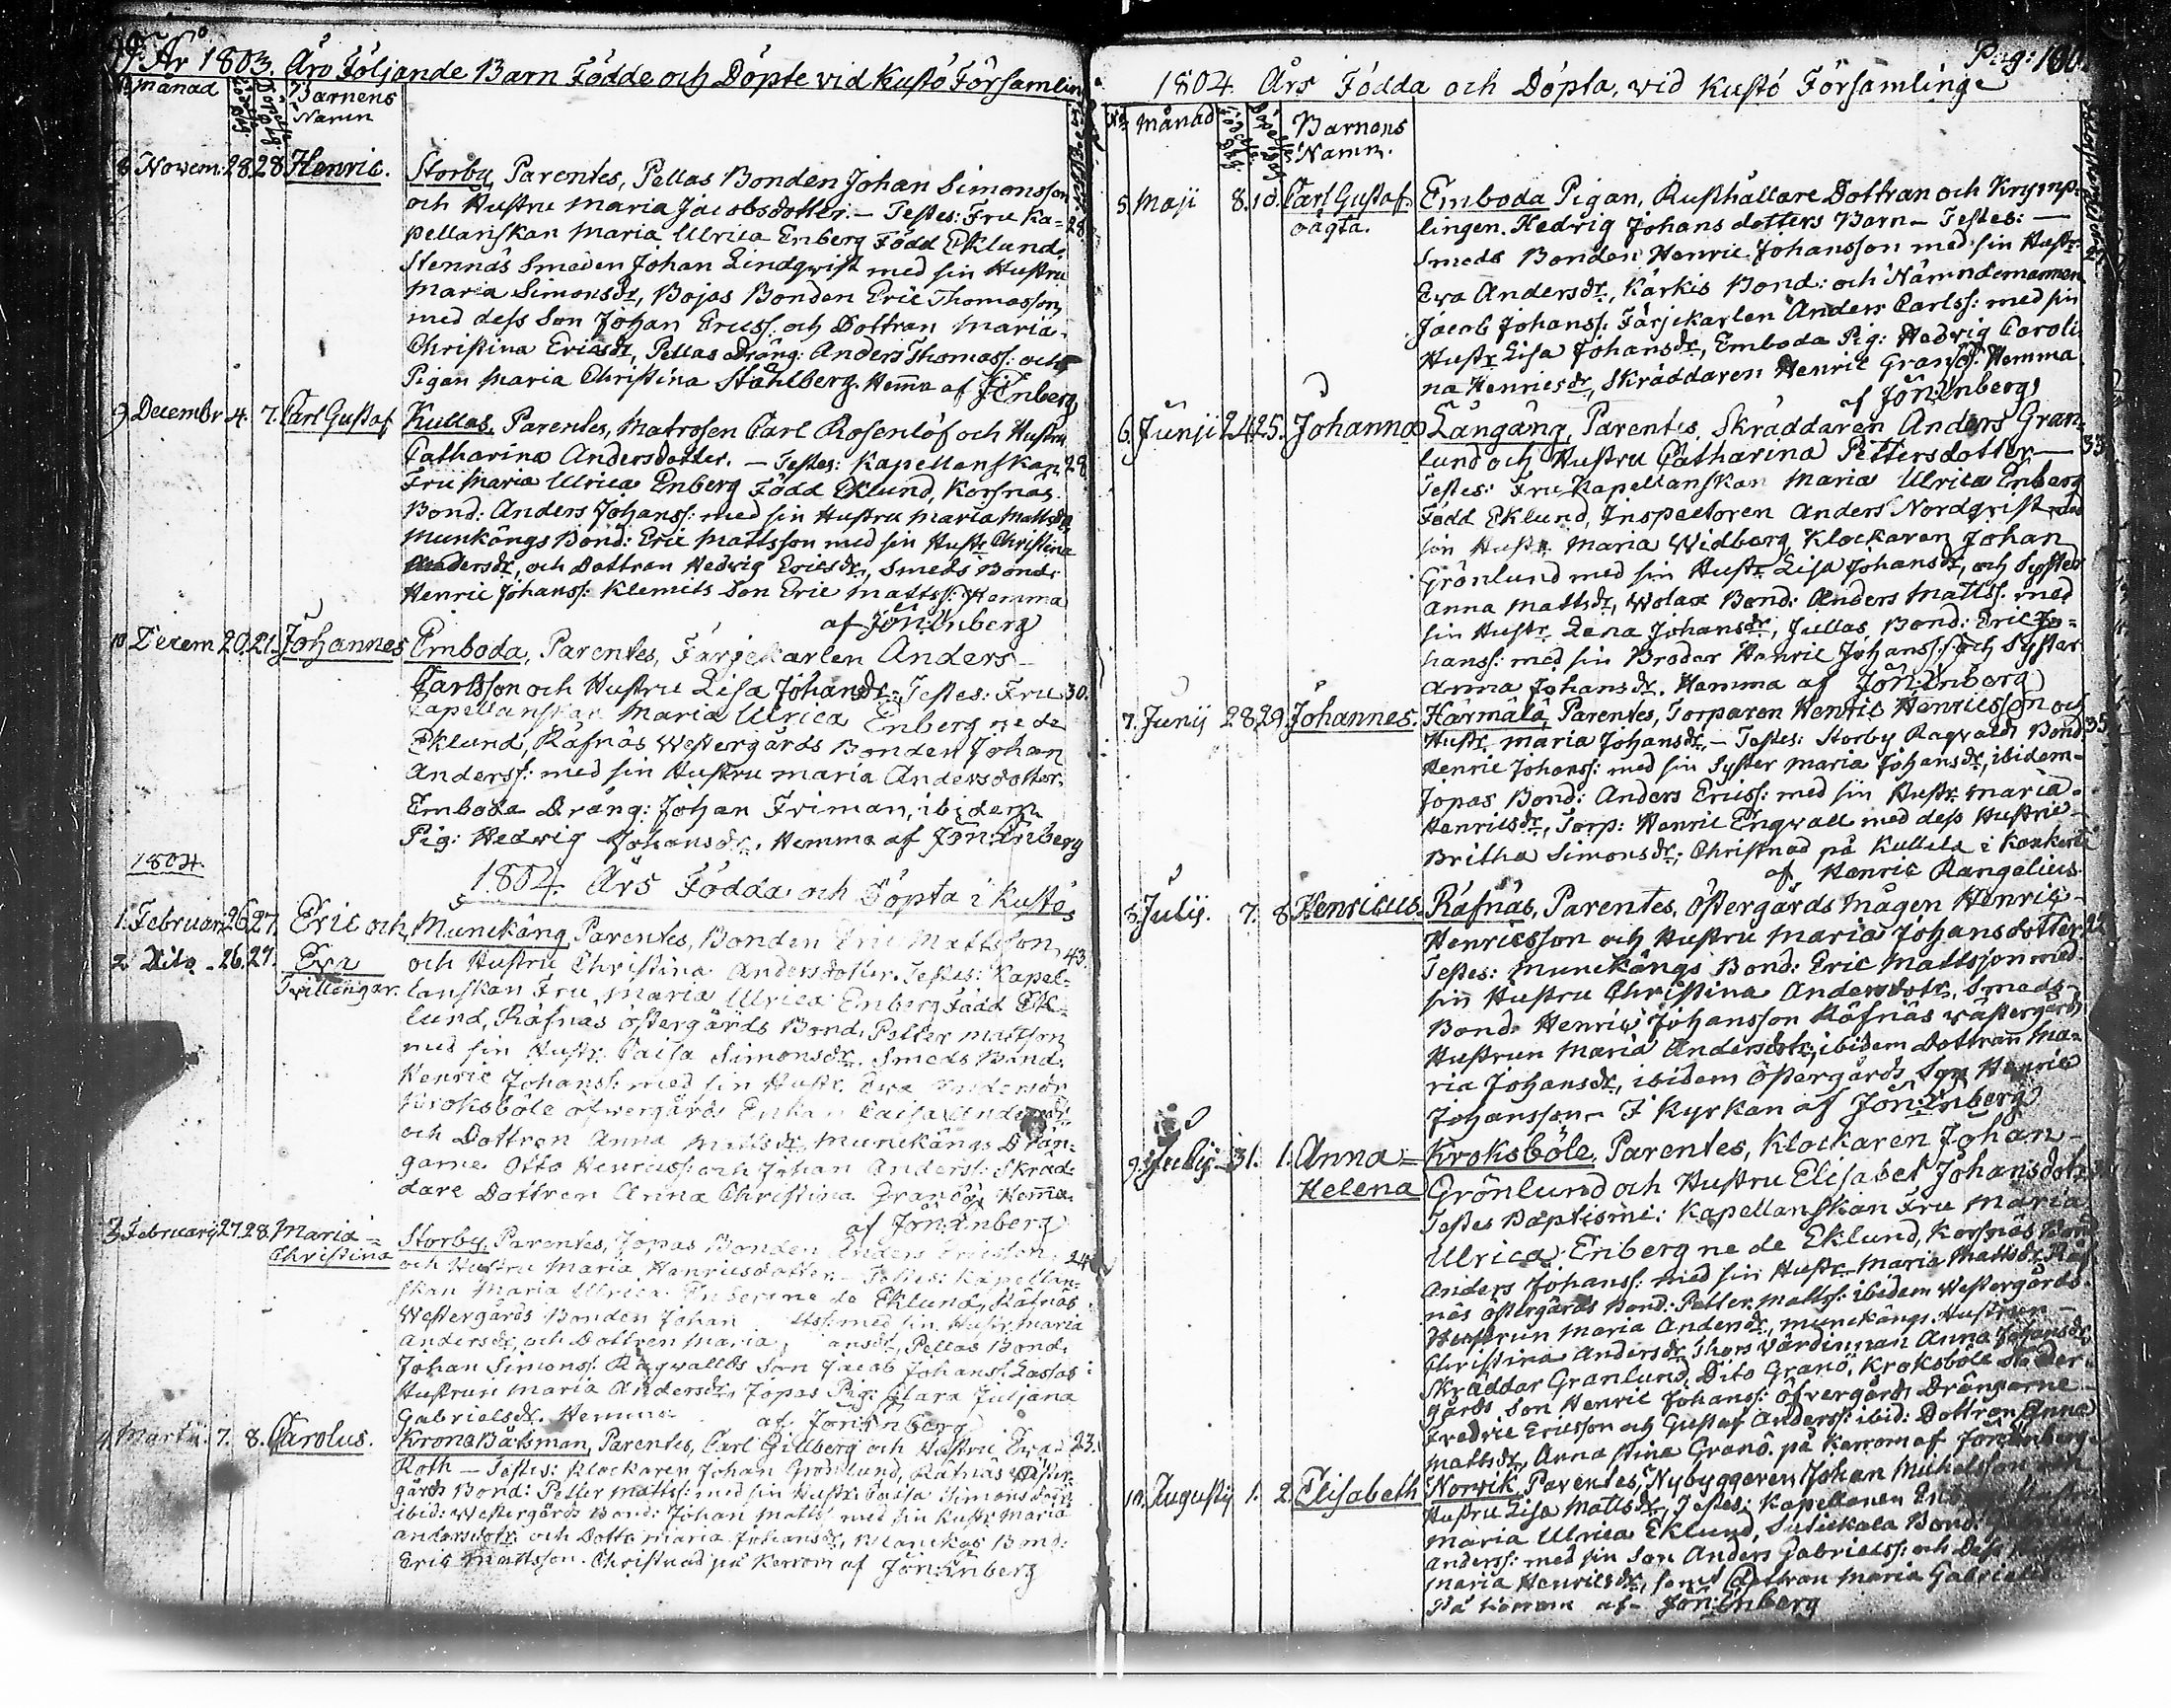 År 1803. Äro Följande Barn Födde och Döpte vid Kustö Församlin
månad Barnens
Namn
8 Novem: 28 28 Henric. Storby, Parentes, Pellas Bonden Johan Simonsson
och Hustru Maria Jacobsdotter. – Testes: Fru Ka= 28.
pellanskan Maria Ulrica Enberg Född Eklund,
Stennäs Smeden Johan Lindqvist med sin Hustru
Maria Simonsdr, Bojas Bonden Eric Thomasson,
med dess Son Johan Ericss: och Dottran Maria
Christina Ericsdr, Pellas Dräng: Anders Thomass: och
Pigan Maria Christina Ståhlberg. Hema af Jön:Enberg
9 Decembr 4. 7. Carl Gustaf Kullas, Parentes, Matrosen Carl Rosenlöf och Hustru
Catharina Andersdotter. – Testes: Kapellanskan 28
Fru Maria Ulrica Enberg Född Eklund, Korsnäs
Bond: Anders Johanss: med sin Hustru Maria Mattsdr,
Munkängs Bond: Eric Mattsson med sin Hustr Christina
Andersdr, och Dottran Hedvig Ericsdr, Smeds Bond:
Henric Johanss: Klemits Son Eric Mattss: Hemma
af Jön:Enberg
10 Decem 20. 21. Johannes Emboda, Parentes, Färjekarlen Anders
Carlsson och Hustru Lisa Johansdr. Testes: Fru 30.
Kapellanskan Maria Ulrica Enberg ne de
Eklund, Räfnäs Westergårds Bonden Johan
Anderss: med sin Hustru Maria Andersdotter,
Emboda Dräng: Johan Friman, ibidem
Pig: Hedvig Johansdr, Hemma af Jön:Enberg
1804.
1804. Års Födda och Döpta i Kustö
1. Februari 26 27. Eric och Munckäng, Parentes, Bonden Eric Mattsson 43.
2 Dito 26. 27. Eva och Hustru Christina Andersdotter. Testes: Kapel-
Tvillingar. lanskan Fru Maria Ulrica Enberg Född Ek-
lund, Räfnäs Östergårds Bond: Petter Mattsson
med sin Hustr: Caisa Simonsdr. Smeds Bond:
Henric Johanss: med sin Hustr: Eva Andersdr
Kroksböle Öfvergårds Enkan Caisa Andersdr
och Dottran Anna Mattsdr, Munckängs Drän-
garne Otto Henricss: och Johan Anderss: Skräd-
dare Dottren Anna Christina Granö, Hema
af Jön:Enberg
3. Februarij 27. 28. Maria= Storby, Parentes, Jopas Bonden Anders Ericsson
Christina och Hustru Maria Henricsdotter. – Testes: Kapellan- 24
skan Maria Ulrica Enberg ne de Eklund, Räfnäs
Westergårds Bonden Johan med sin Hustr: Maria
Andersdr, och Dottren Maria Pellas Bond:
Johan Simonss: Ragwallds Son Jacob Johanss: Lassas
Hustrun Maria Andersdr, Jopas Pig: Clara Juljana
Gabrielsdr. Hemma af Jön:Enberg
4. Martii. 7. 8. Carolus. Krono Båtsman, Parentes, Carl Gillberg och Hustru Eva 23.
Roth – Testes: Klockaren Johan Grönlund, Räfnäs Öster-
gårds Bond: Petter Mattss: med sin Hustr: Caisa Simonsdotr
ibid: Westergårds Bond: Johan Matts: med sin Hustr Maria
Andersdotr och Dottr Maria Johansdr, Blanckas Bond:
Eric Mattsson. Christnad på Kerrom af Jön:Enberg
Pag: 100
1804. Års Födda och Döpta, vid Kustö Församlinge
månad Barnens
Namn.
5. Maji 8. 10. Carl Gustaf Emboda Pigan, Rusthållare Dottran och Krymp-
oägta. lingen. Hedvig Johans dotters Barn – Testes: –
Smeds Bonden Henric Johansson med sin Hustr: 27.
Eva Andersdr, Kärkis Bond: och Nämndemannen
Jacob Johanss: Färjekarlen Anders Carlss: med sin
Hustr Lisa Johansdr, Emboda Pig: Hedvig Caroli-
na Henricsdr, Skräddaren Henric Granö. Hemma
af Jön:Enberg
6. Junji 24 25. Johanna Långäng, Parentes, Skräddaren Anders Gran-
lund och Hustru Catharina Pettersdotter – 33
Testes: Fru Kapellanskan Maria Ulrica Enberg
Född Eklund, Inspectoren Anders Nordqvist med
sin Hustr Maria Widberg, Klockaren Johan
Grönlund med sin Hustr Lisa Johansdr, och Syster
Anna Mattsdr, Wolax Bond: Anders Mattss: med
sin Hustr: Lena Johansdr, Jullas Bond: Eric Jo-
hanss: med sin Broder Henric Johanss: och Syster
Anna Johansdr. Hemma af Jön:Enberg
7. Junij 28. 29. Johannes. Härmälä, Parentes, Torparen Henric Henricsson och
Hustr Maria Johansdr, – Testes: Storby Ragvalds Bond: 35
Henric Johanss: med sin Syster Maria Johansdr, ibidem
Jopas Bond: Anders Ericss: med sin Hustr Maria
Henricsdr, Torp: Henric Engwall med dess Hustru
Britha Simonsdr; Christnad på Kullila i Kankerla
af Henric Rangelius
8. Julij. 7. 8 Henricus. Räfnäs, Parentes, Östergårds Mågen Henric
Henricsson och Hustru Maria Johansdotter 22
Testes: Munckängs Bond: Eric Mattsson med
sin Hustru Christina Andersdotr, Smeds
Bond: Henric Johansson Räfnäs Wästergårds
Hustrun Maria Andersdotr, ibidem Dottran Ma-
ria Johansdr, ibidem Östergårds Son Henric
Johansson – I Kyrkan af Jön:Enberg
9. Julij 31. 1. Anna= Kroksböle, Parentes, Klockaren Johan
Helena Grönlund och Hustru Elisabet Johansdotr
Testes Baptismi: Kapellanskan Fru Maria
Ulrica Enberg ne de Eklund, Korsnäs Bond
Anders Johanss: med sin Hustr Maria Mattsdr Räf
näs Östergårds Bond: Petter Mattss: ibidem Westergårds
Hustrun Maria Andersdr, Munckängs Hustrun
Christina Andersdr, Thors Värdinnan Anna Johansdr
Skräddar Granlund, Dito Granö, Kroksböle Neder
gårds Son Henric Johanss: Öfvergårds Drängarne
Fredric Ericsson och Gustaf Anderss: ibid: Dottran Anna
Mattsdr, Anna Stina Granö. på Kerrom af Jön:Enberg
10. Augustij 1. 2. Elisabeth Norvik, Parentes, Nybyggaren Johan Michelsson och
Hustru Lisa Mattsdr, Testes: Kapellanen
Maria Ulrica Eklund, Bond:
Anderss: med sin Son Anders Gabrielss: och Dess
Maria Henricsdr, samt Dottran Maria
På Kerrom af Jön:Enberg